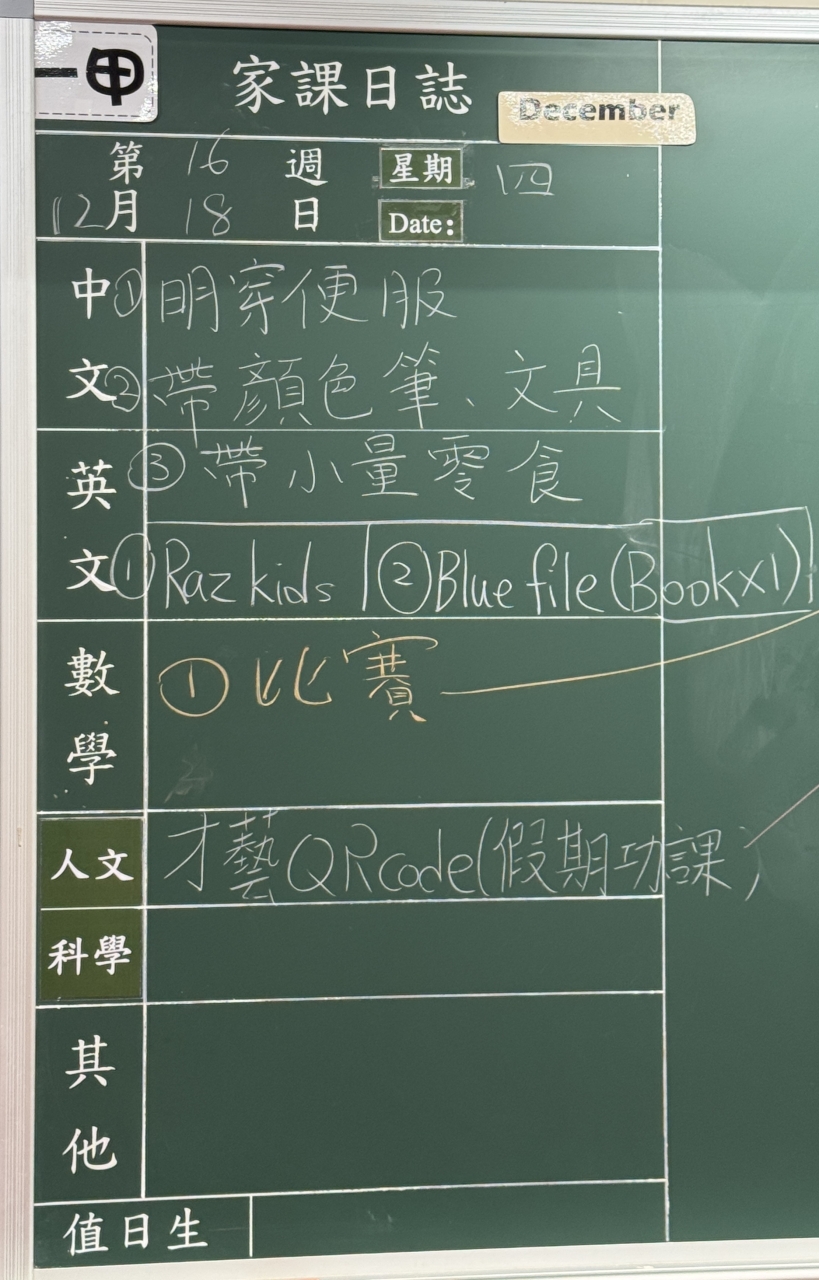 一甲
家課日誌
December
第 16 週 星期 四
12月 18 日 Date:
中文
① 明穿便服
② 帶顏色筆、文具
英文
③ 帶小量零食
① Raz kids ② Blue file (Book×1)
數學
① 比賽
人文 才藝QR code(假期功課)
科學
其他
值日生